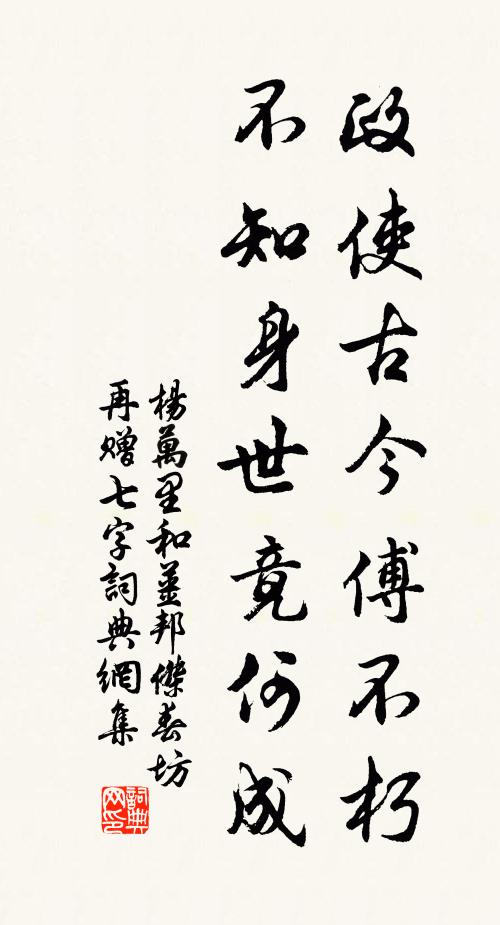 政使古今傳不朽
不知身世竟何成
楊萬里和姜邦傑春坊
再贈七字詞典網集
詞典网印